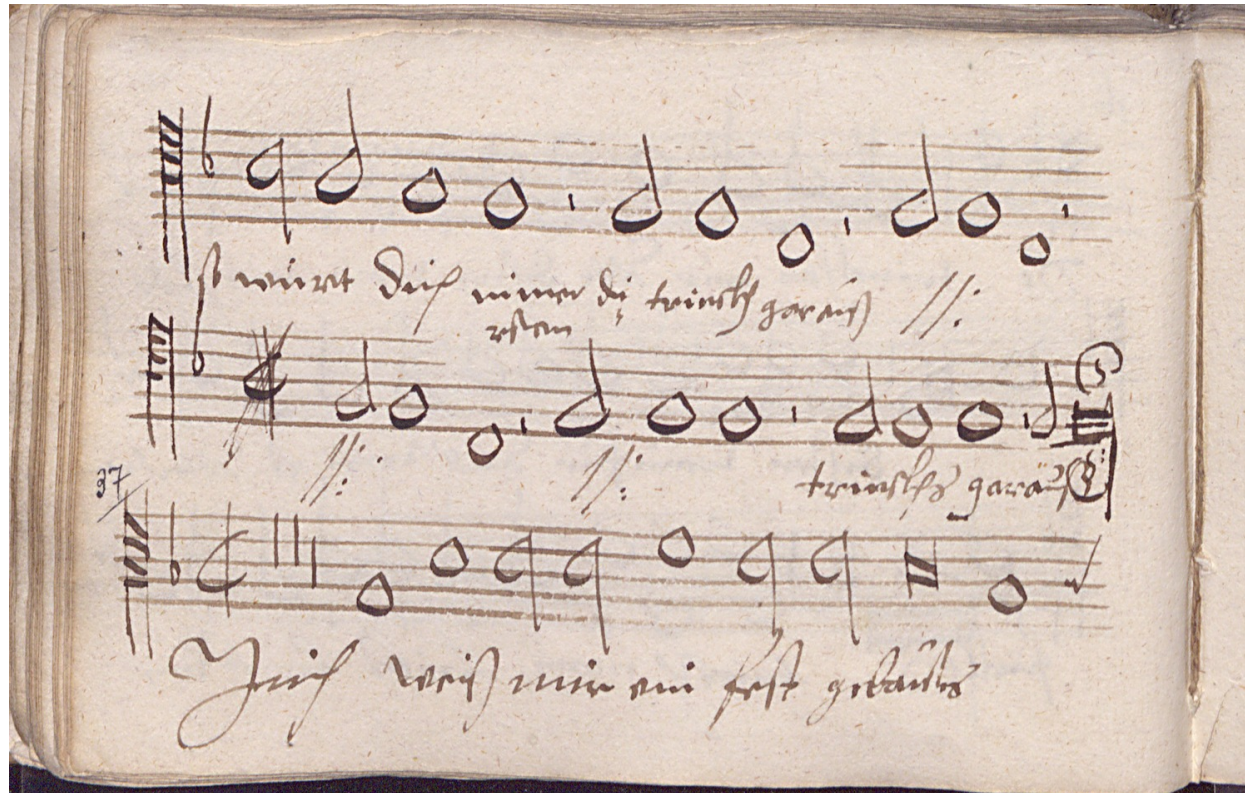 so würt dich nimer dj trincks gar auß //:
rsten
//: //: trincks gar auß
37
Ich weiß mir ein fest gebautes